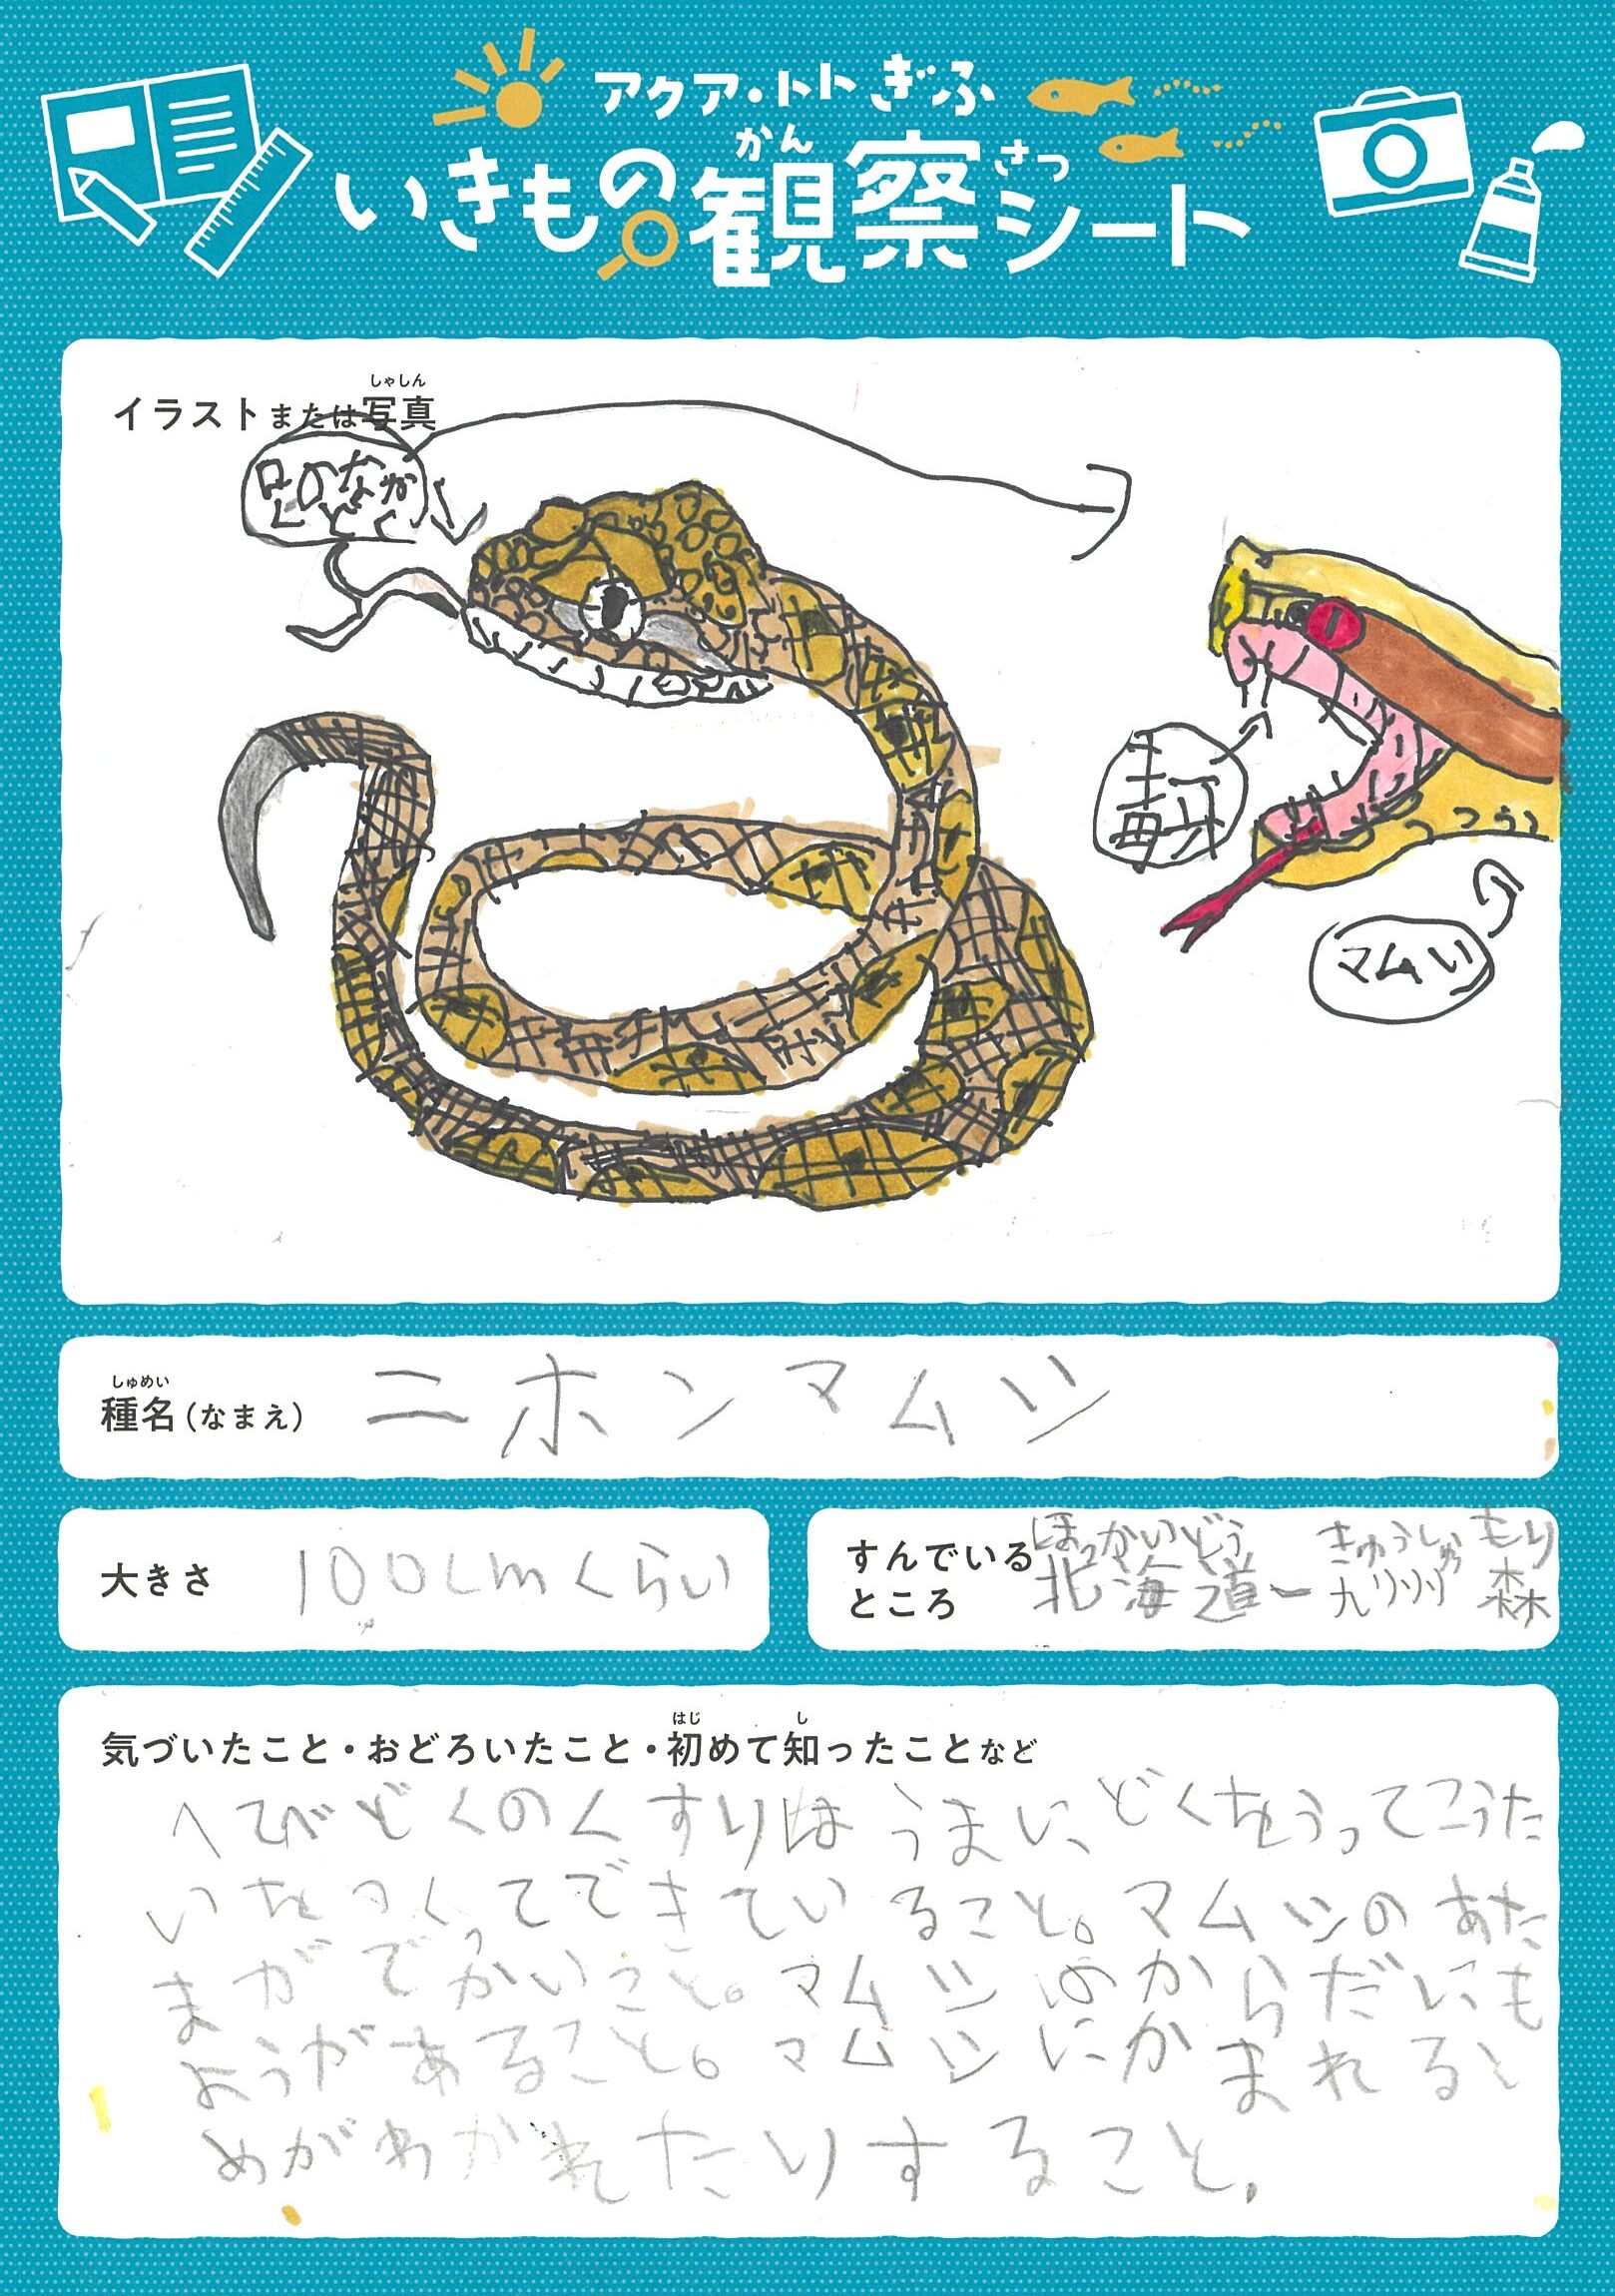 アクア・トト ぎふ
いきもの観察シート
かん
さつ
イラストまたは写真
しゃしん
口のなか
どく
毒牙
マムシ
しゅめい
種名(なまえ)
ニホンマムシ
大きさ
100cmくらい
すんでいる
ところ
ほっかいどう きゅうしゅう もり
北海道ー九州 森
はじ し
気づいたこと・おどろいたこと・初めて知ったことなど
へびどくのくすりはうまい、どくをうってこうた
いをつくってできていること。マムシのあた
まがでかいこと。マムシのからだにも
ようがあること。マムシにかまれると
めがわかれたりすること。